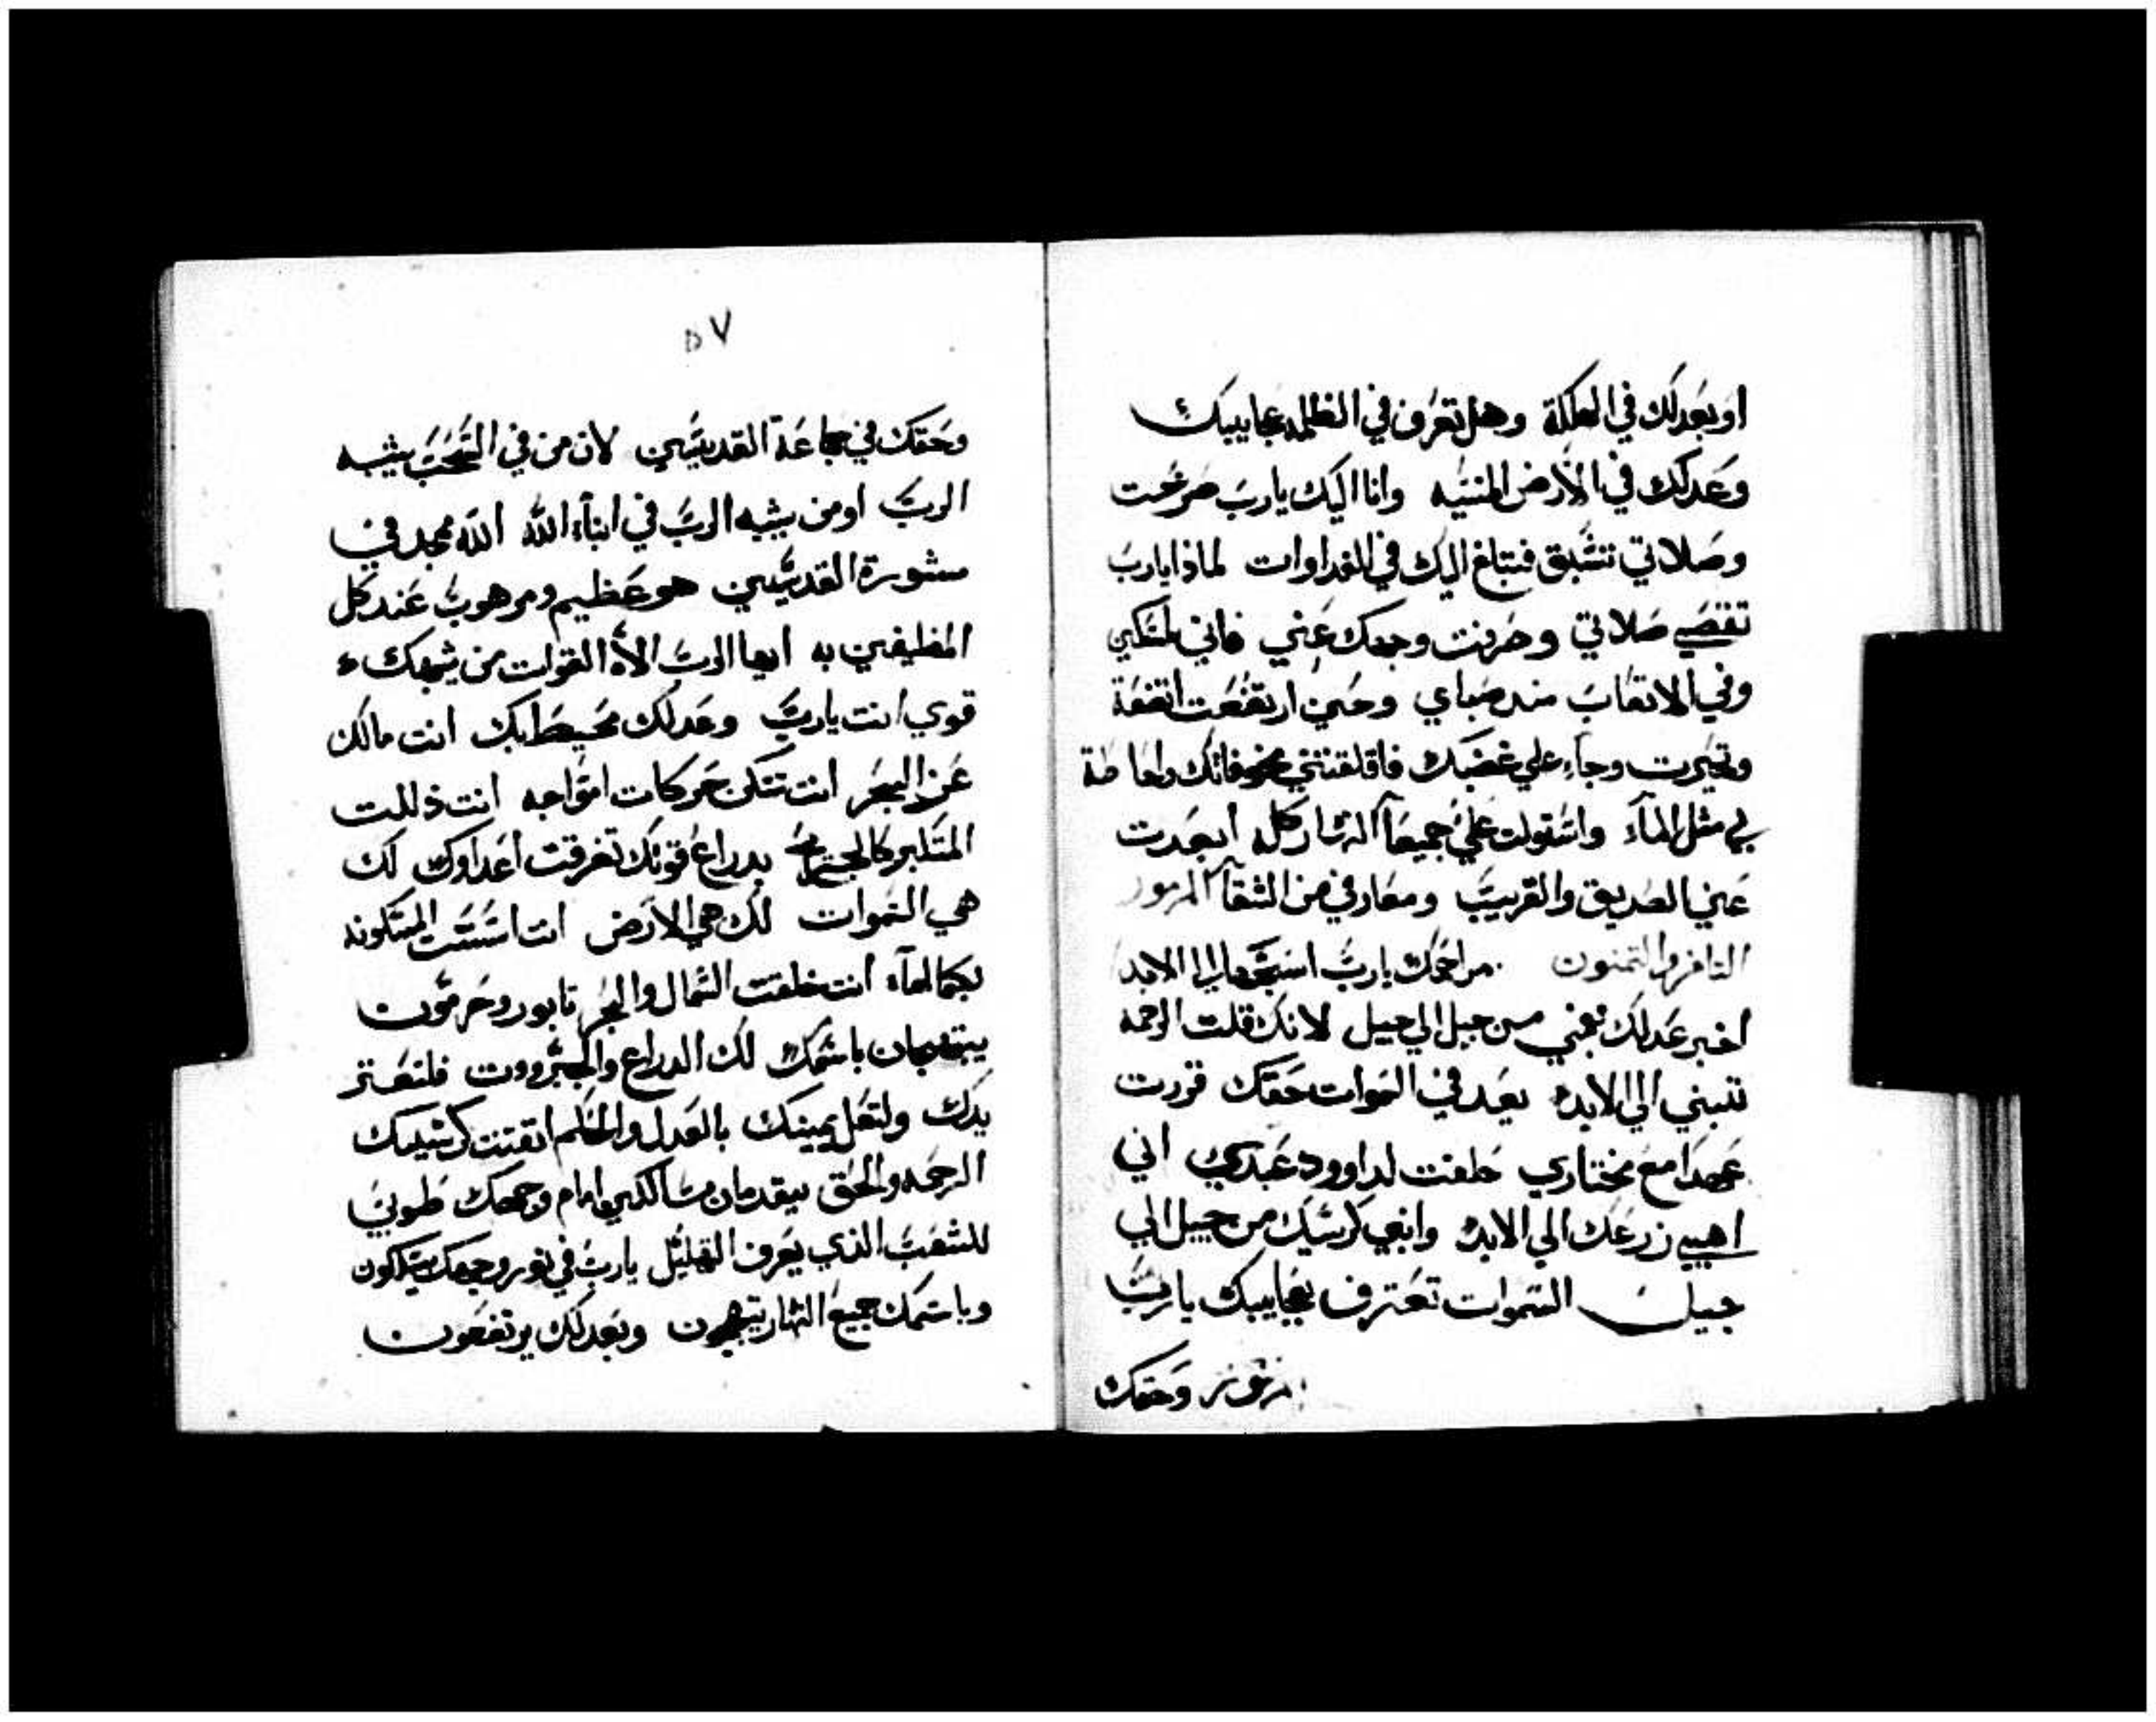 او بعدلك في الهلكة وهل تعرف في الظلمه عجايبك
وعدلك في الارض المنسيه وانا اليك يا رب صرخت
وصلاتي تسبق فتبلغ اليك في الغداوات لماذا يا رب
تقصي صلاتي وصرفت وجهك عني فاني مسكين
وفي الاتعاب منذ صباي وحين ارتفعت اتضعة
وتحيرت وجاء علي غضبك فاقلقتني مخوفاتك واحاطة
بي مثل الماء واستولت علي جميعا النهار كله ابعدت
عني الصديق والقريب ومعارفي من الشقا المزمور
الثامن والثمنون مراحمك يا رب اسبحها الي الابد
اخبر عدلك بفمي من جيل الي جيل لانك قلت الرحمه
تبني الي الابد يعد في السموات حقك قررت
عهدا مع مختاري حلفت لداوود عبدي اني
اهيي زرعك الي الابد وابني كرسيك من جيل الي
جيل السموات تعترف بعجايبك يا رب
وحقك
٥٧
وحقك في جماعة القديسين لان من في السحب يشبه
الرب او من يشبه الرب في ابناء الله الله ممجد في
مشورة القديسين هو عظيم ومرهوب عند كل
المطيفين به ايها الرب الاه القوات من يشبهك
قوي انت يا رب وعدلك محيط بك انت مالك
عز البحر انت تسكن حركات امواجه انت ذللت
المتكبر كالجريح بدراع قوتك تفرقت اعداوك لك
هي السموات لك هي الارض انت اسست المسكونه
بكمالهاء انت خلقت الشمال والبحر تابور وحرمون
يبتهجان باسمك لك الدراع والجبرووت فلتعتز
يدك ولتعل يمينك بالعدل والحكم اتقنت كرسيك
الرحمه والحق يتقدمان سالكين امام وجهك طوبي
للشعب الذي يعرف التهليل يا رب في نور وجهك يسلكون
وباسمك جميع النهار يبتهجون وبعدلك يرتفعون